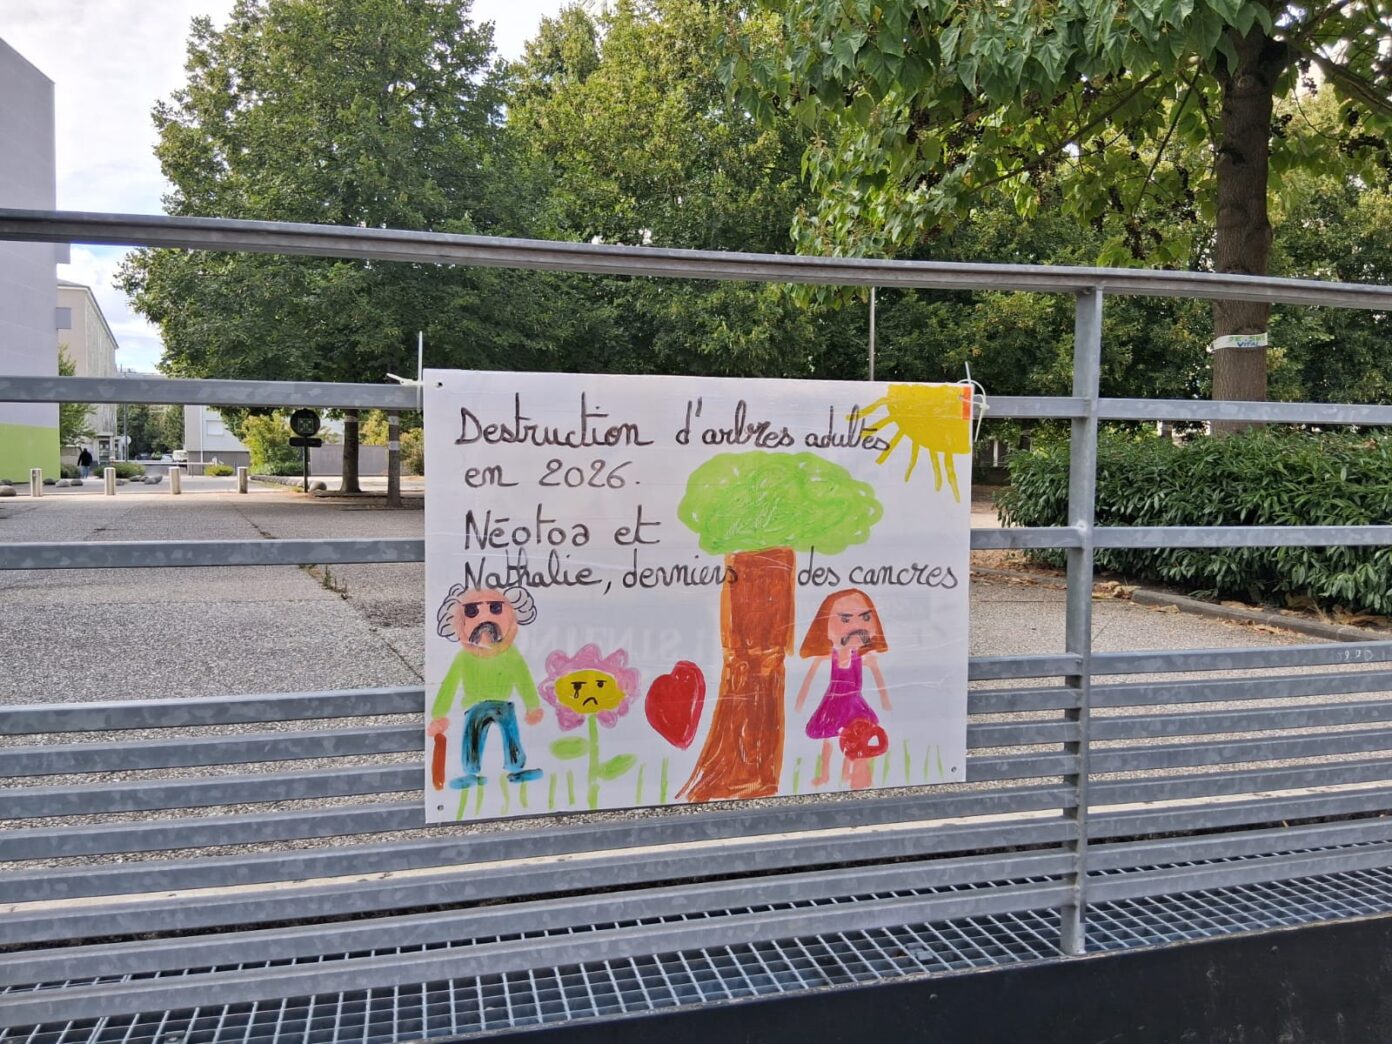 Destruction d'arbres adultes
en 2026.
Néotoa et
Nathalie, derniers des cancres